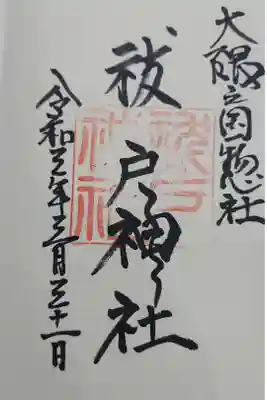 大隅國惣社
祓戸神社
令和三年三月三十一日
祓戸
神社